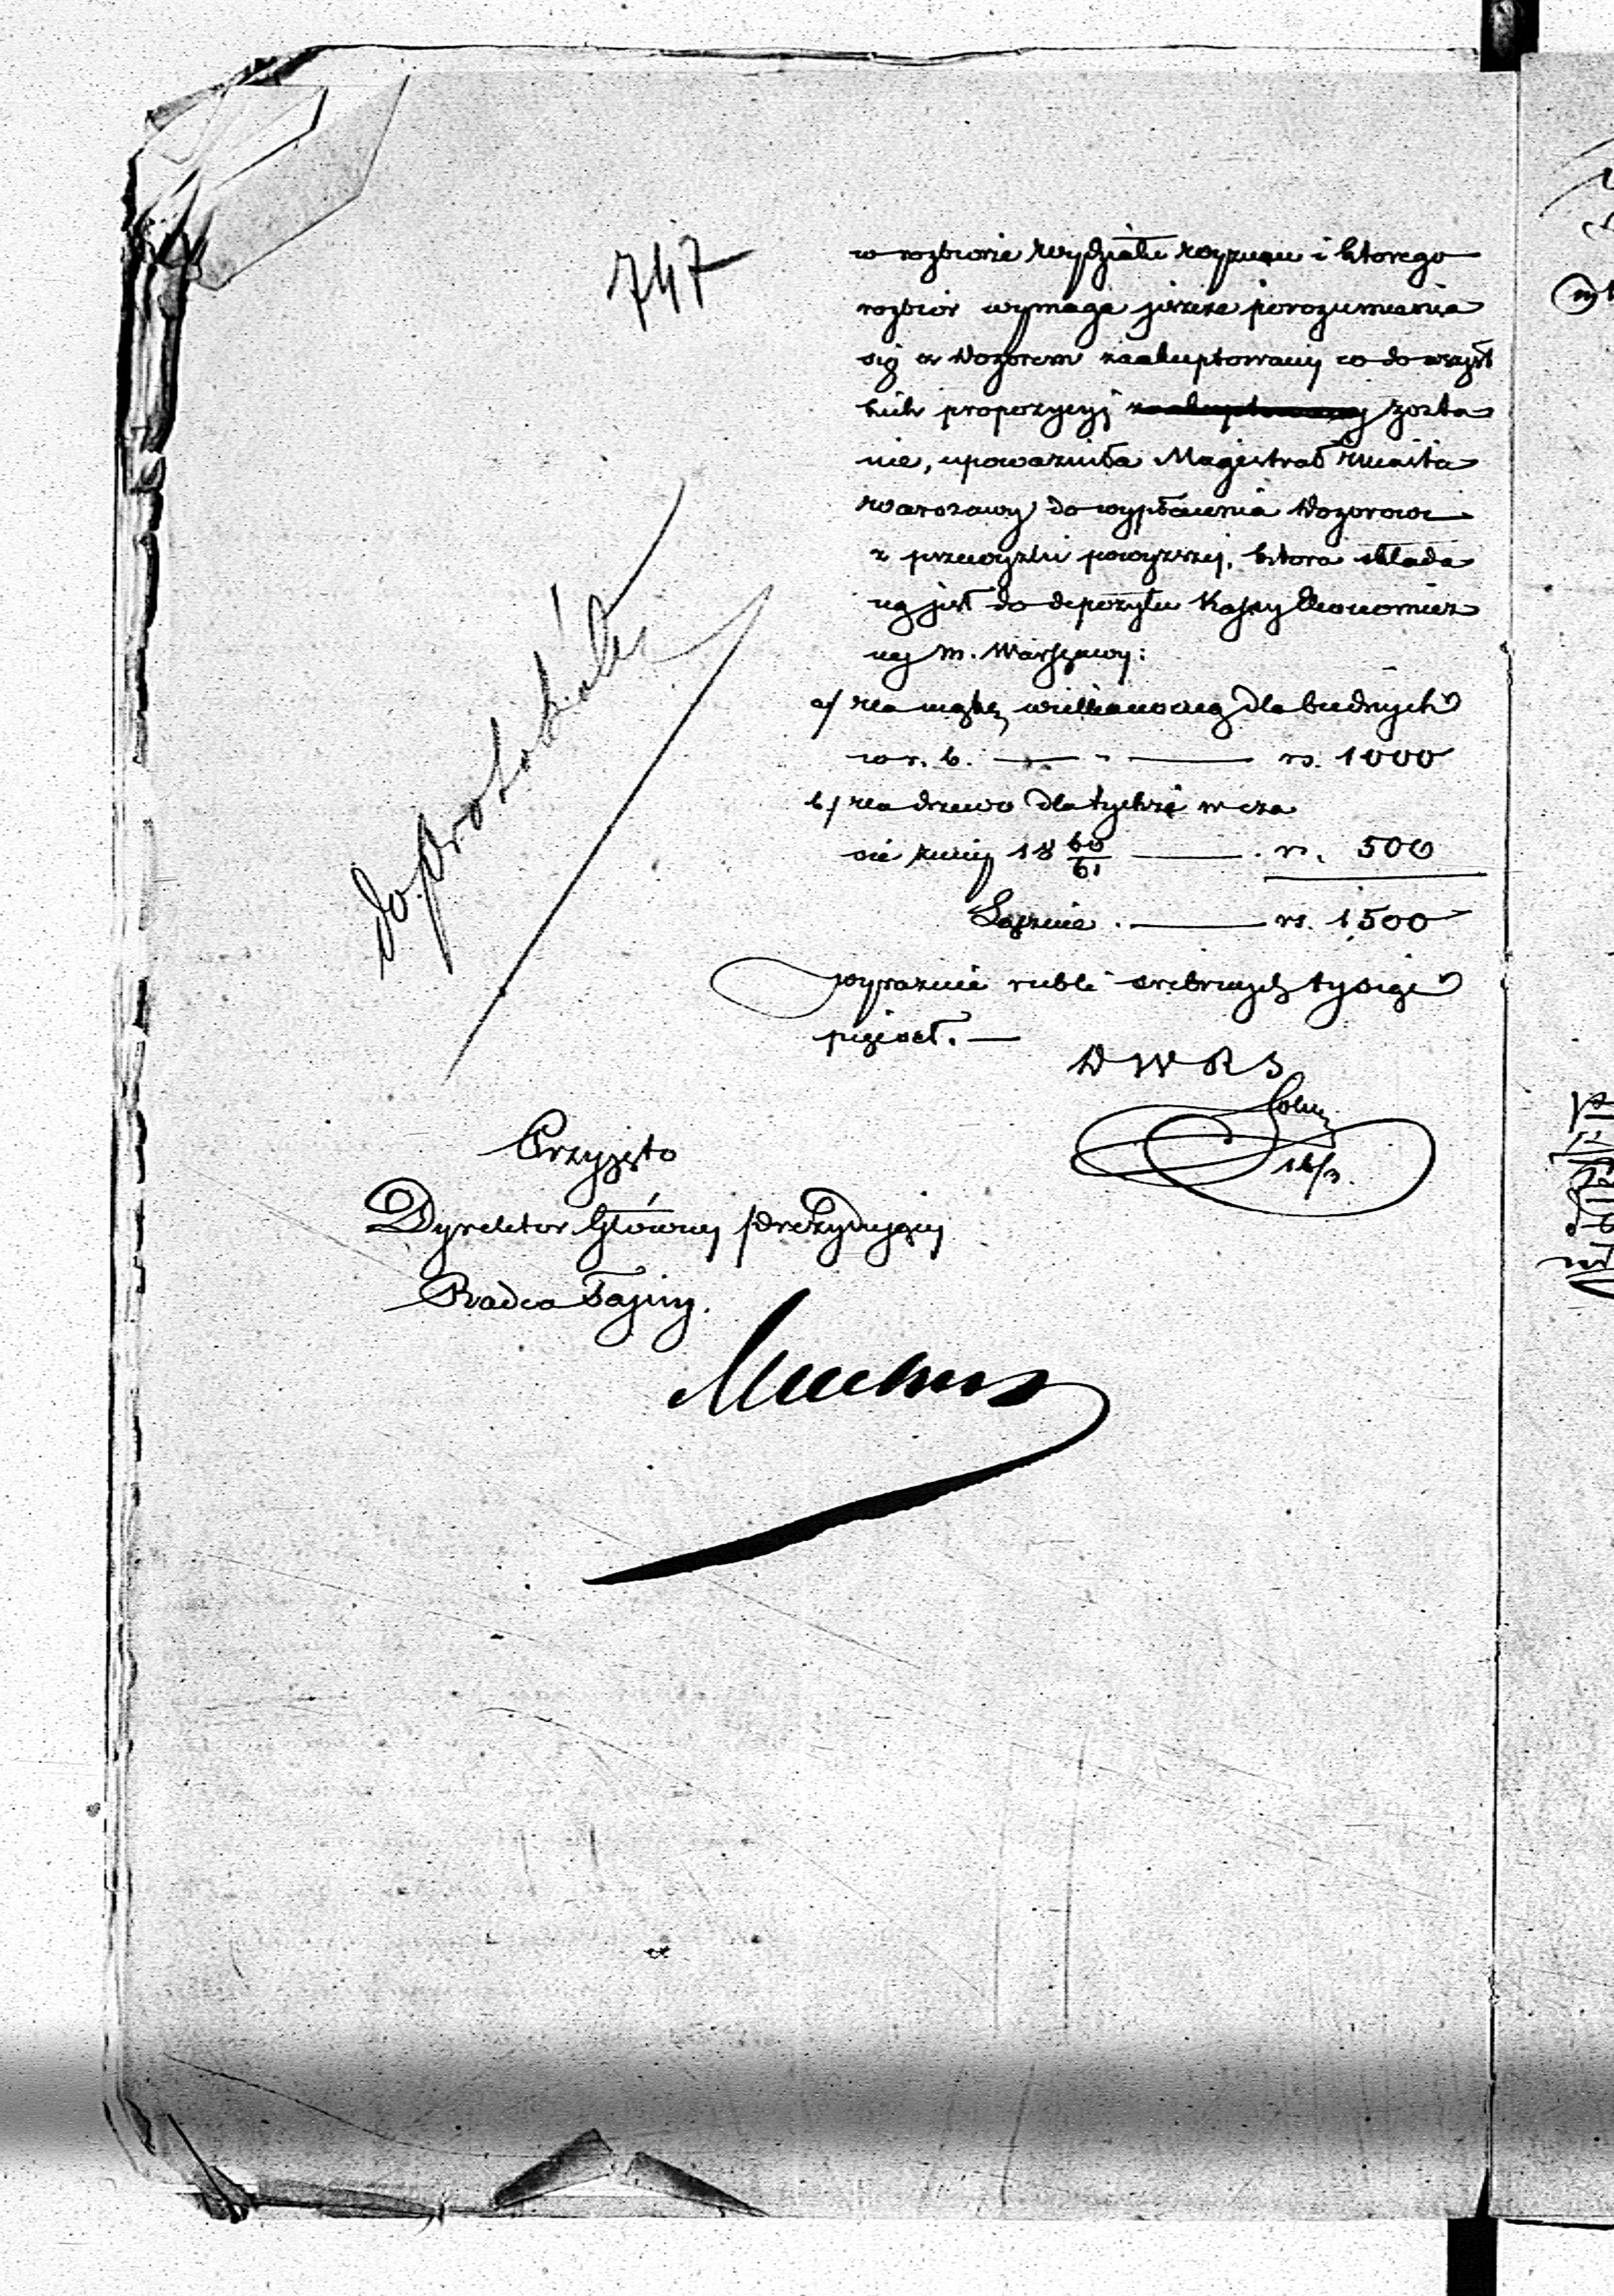 747
w rozbiorze Wydziału wyznań i którego
rozbiór wymaga jeszcze porozumienia
się z Dozorem zaakceptowany co do wszyst
kich propozycyj zaakceptowany zosta
nie, upoważniła Magistrat Miasta
Warszawy do wypłacenia Dozorowi
z przewyżki powyższej, która składa
ną jest do depozytu Kassy Ekonomicz
nej M. Warszawy:
a/ na mąkę wielkanocną dla biednych
w r. b. — " — rs. 1000
b/ na drzewo dla tychże w cza
sie zimy 18 60/61 — . rs. 500
Łącznie . — rs. 1500
wyraźnie rubli srebrnych tysiąc
pięćset. —
D W R S
16/3.
do protokółu
Przyjęto
Dyrektor Główny Prezydujący
Radca Tajny.